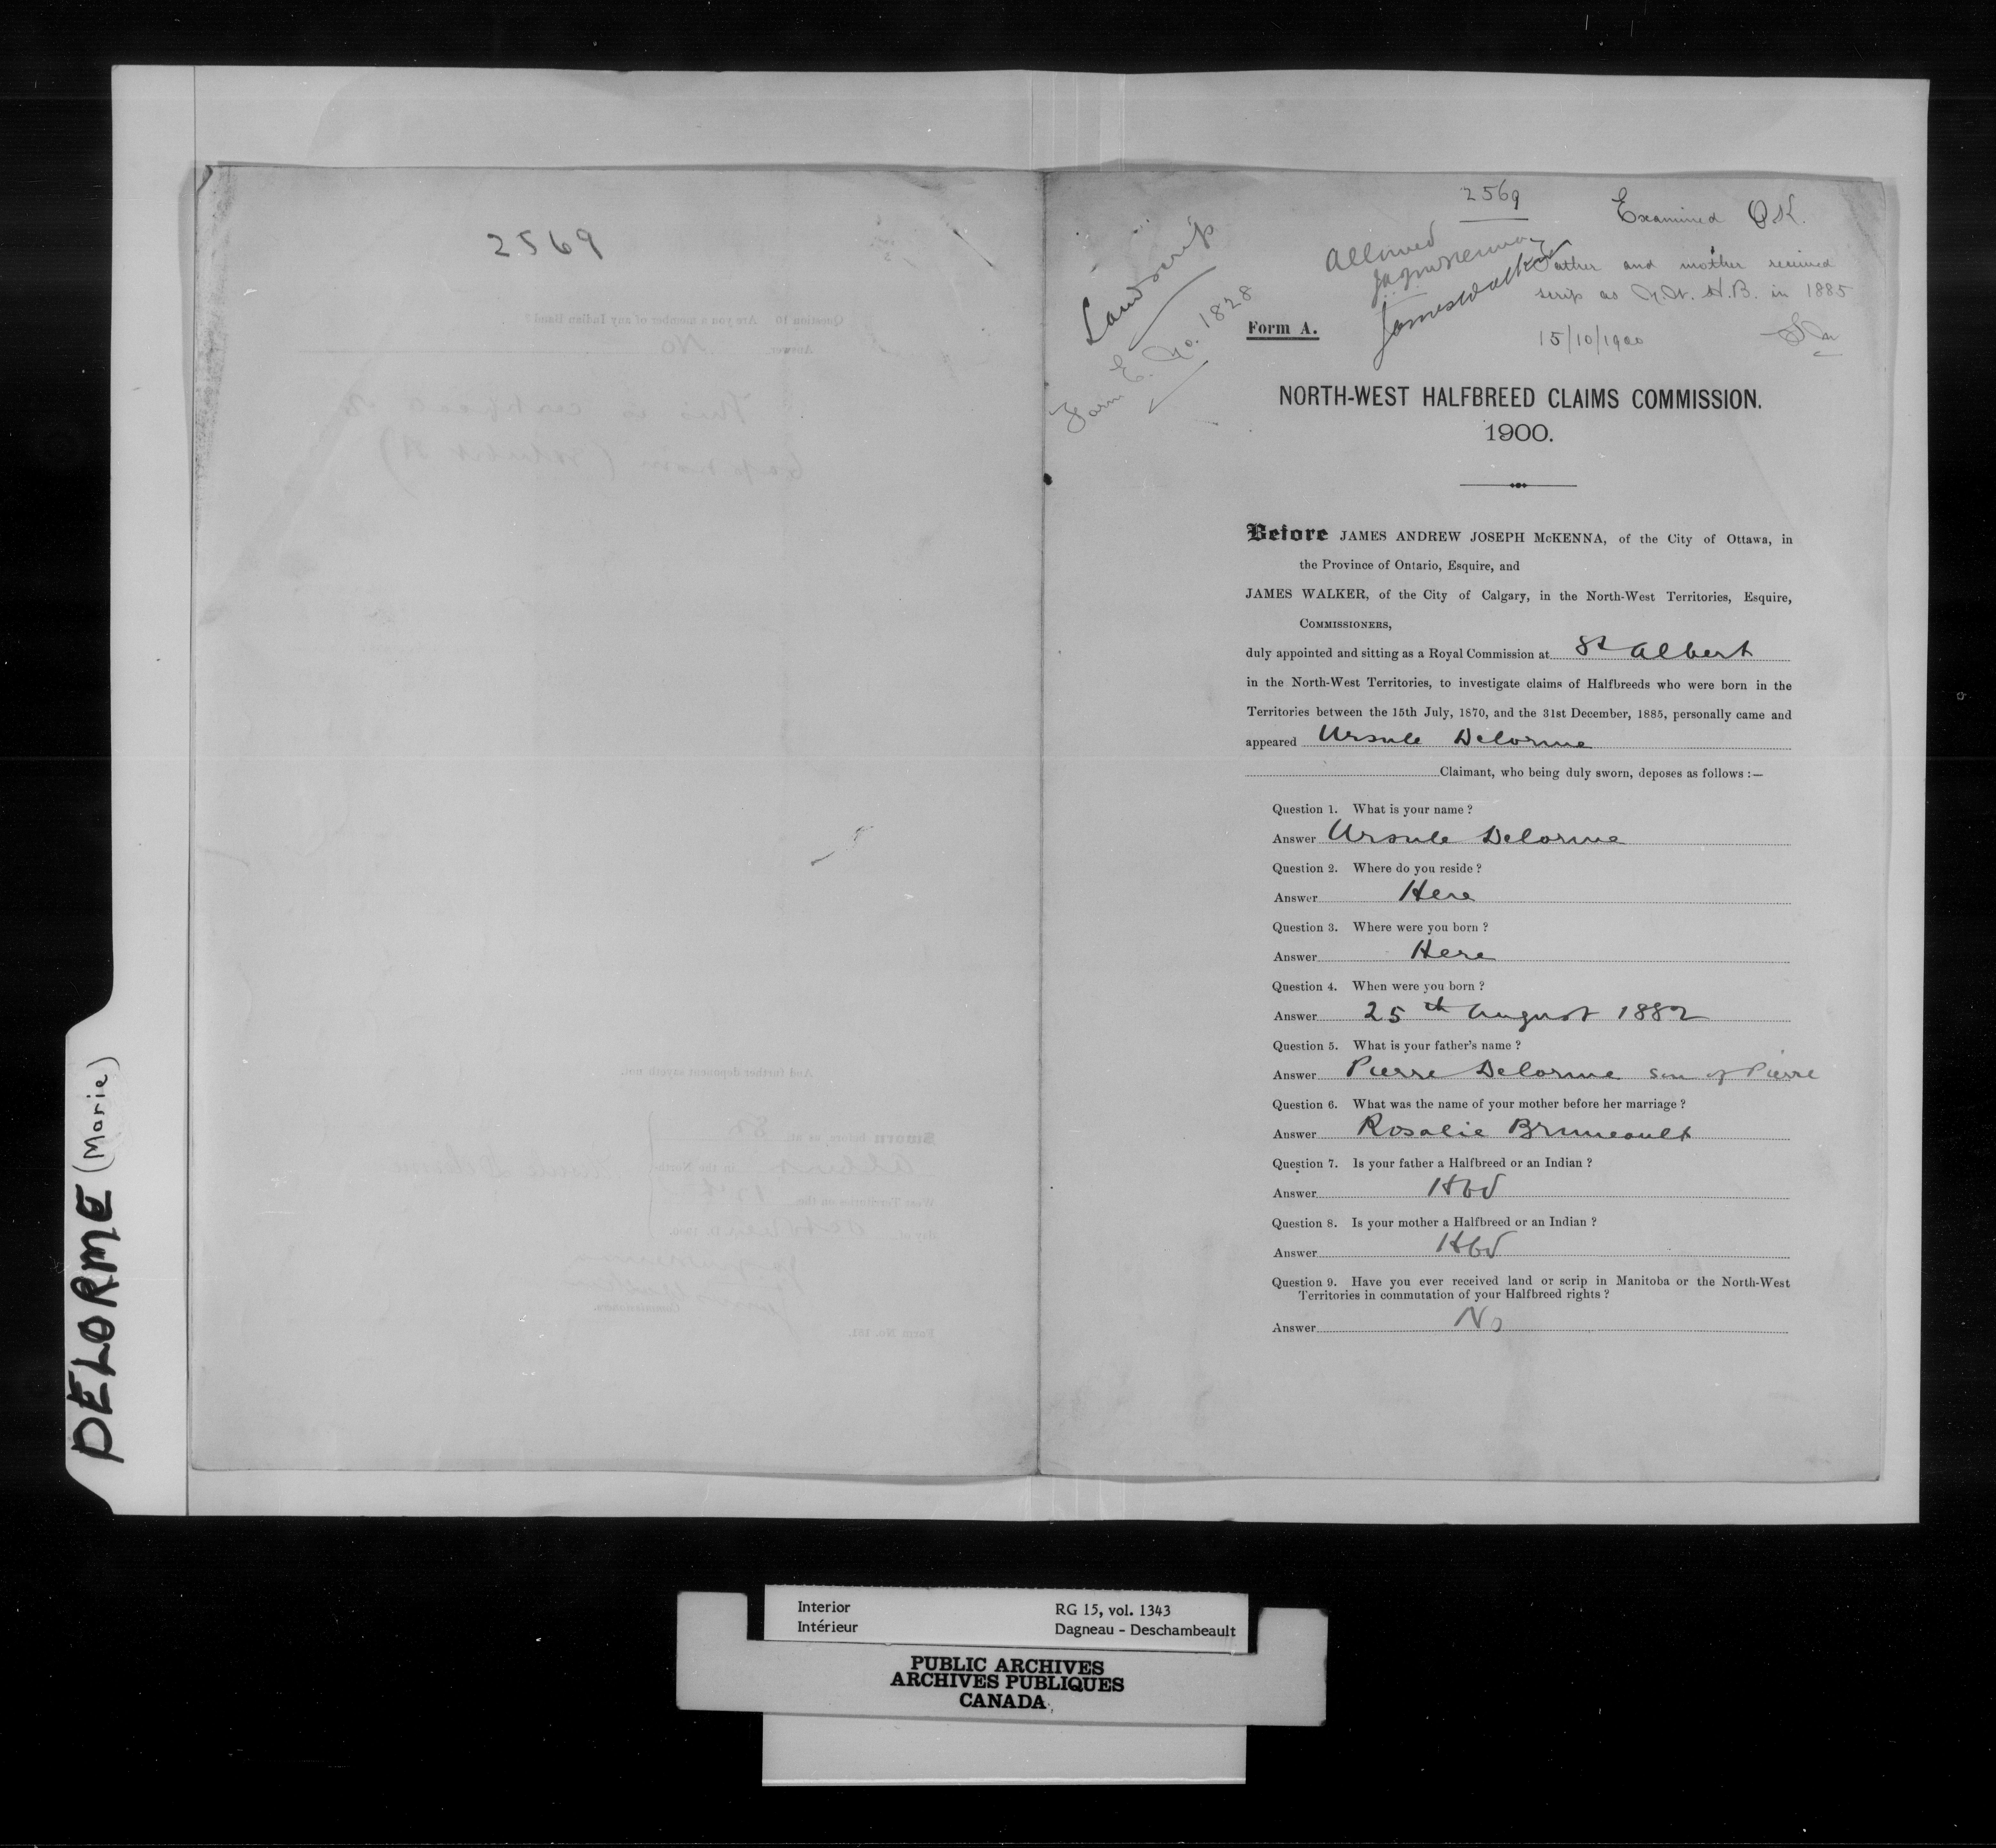 DELORME (Marie)
2569
2569
Examined OK.
Land scrip
Form E. No. 1828
Allowed
JAJMcKenna
James Walker
Father and mother received
scrip as N.W. H.B. in 1885
15/10/1900
Form A.
NORTH-WEST HALFBREED CLAIMS COMMISSION.
1900.
Before JAMES ANDREW JOSEPH McKENNA, of the City of Ottawa, in
the Province of Ontario, Esquire, and
JAMES WALKER, of the City of Calgary, in the North-West Territories, Esquire,
COMMISSIONERS,
duly appointed and sitting as a Royal Commission at St Albert
in the North-West Territories, to investigate claims of Halfbreeds who were born in the
Territories between the 15th July, 1870, and the 31st December, 1885, personally came and
appeared Ursule Delorme
Claimant, who being duly sworn, deposes as follows :—
Question 1. What is your name ?
Answer Ursule Delorme
Question 2. Where do you reside ?
Answer Here
Question 3. Where were you born ?
Answer Here
Question 4. When were you born ?
Answer 25th August 1882
Question 5. What is your father's name ?
Answer Pierre Delorme son of Pierre
Question 6. What was the name of your mother before her marriage ?
Answer Rosalie Bruneault
Question 7. Is your father a Halfbreed or an Indian ?
Answer Hbd
Question 8. Is your mother a Halfbreed or an Indian ?
Answer Hbd
Question 9. Have you ever received land or scrip in Manitoba or the North-West
Territories in commutation of your Halfbreed rights ?
Answer No
Interior RG 15, vol. 1343
Intérieur Dagneau - Deschambeault
PUBLIC ARCHIVES
ARCHIVES PUBLIQUES
CANADA